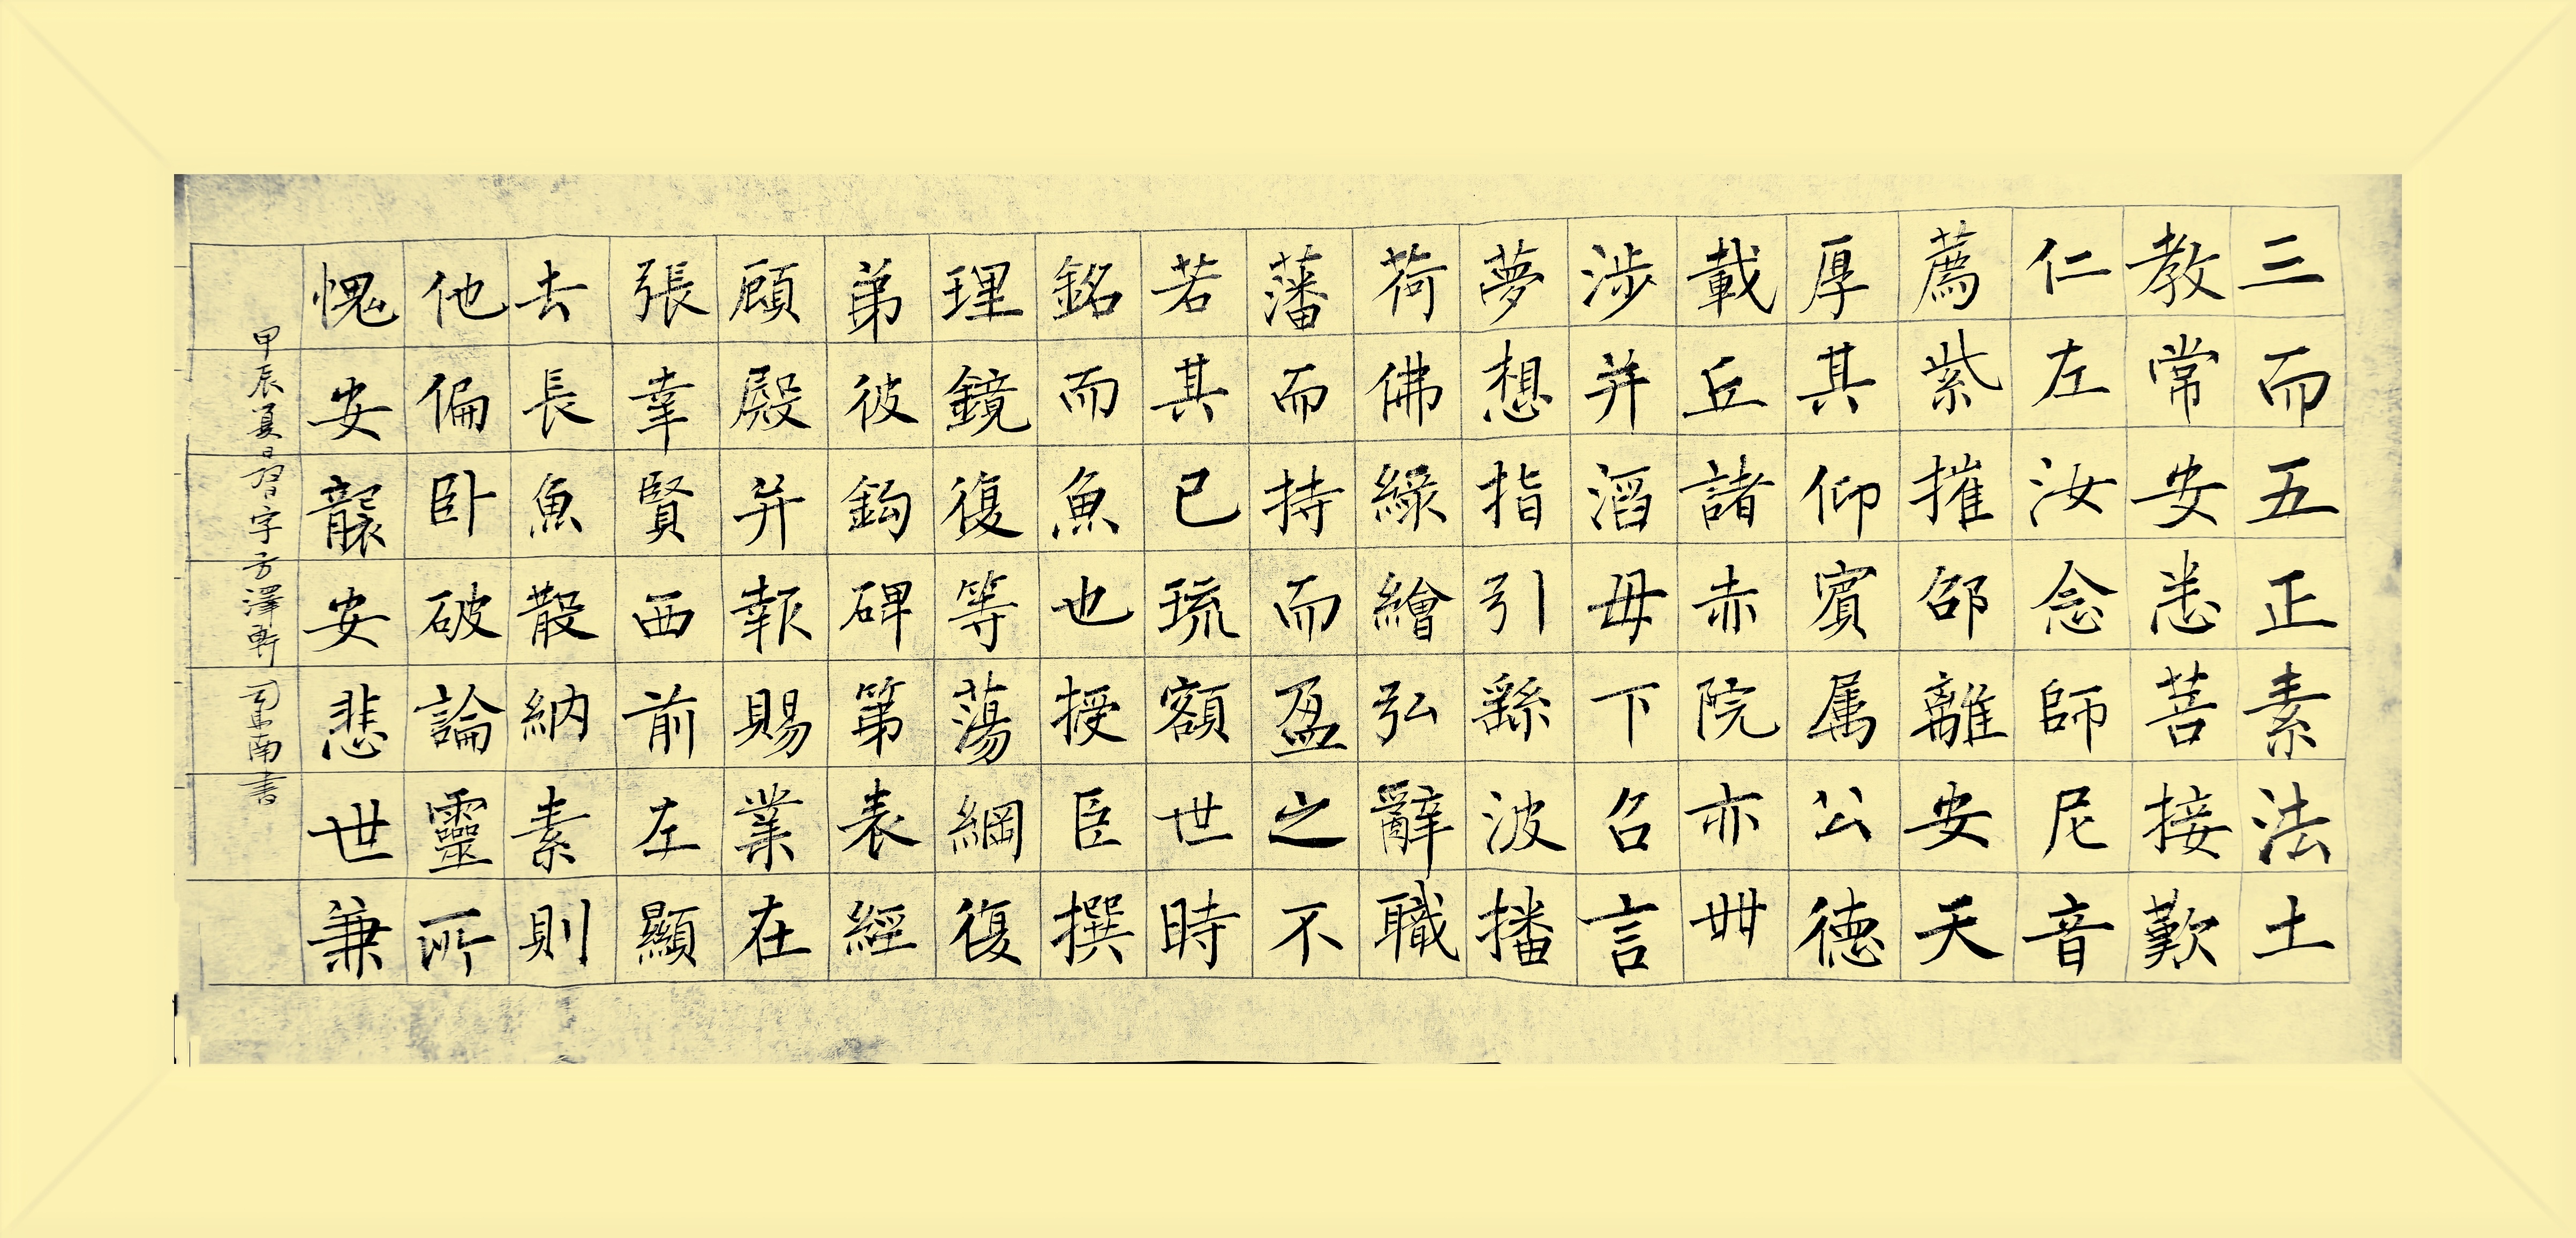 三而五正素法土
教常安恙菩接歎
仁左汝念師尼音
薦紫摧邵離安天
厚其仰賓属公德
載丘諸赤院亦世
涉并滔毋下名言
夢想指引繇波播
荷佛綠繪弘辭職
藩而持而盈之不
若其已琉額世時
銘而魚也授臣撰
理鏡復等蕩綱復
弟彼鈎碑第表經
顧殿并報賜業在
張幸賢西前左顯
去長魚散納素則
他偏卧破論靈所
愧安襲安悲世兼
甲辰夏日習字方澤軒 南書